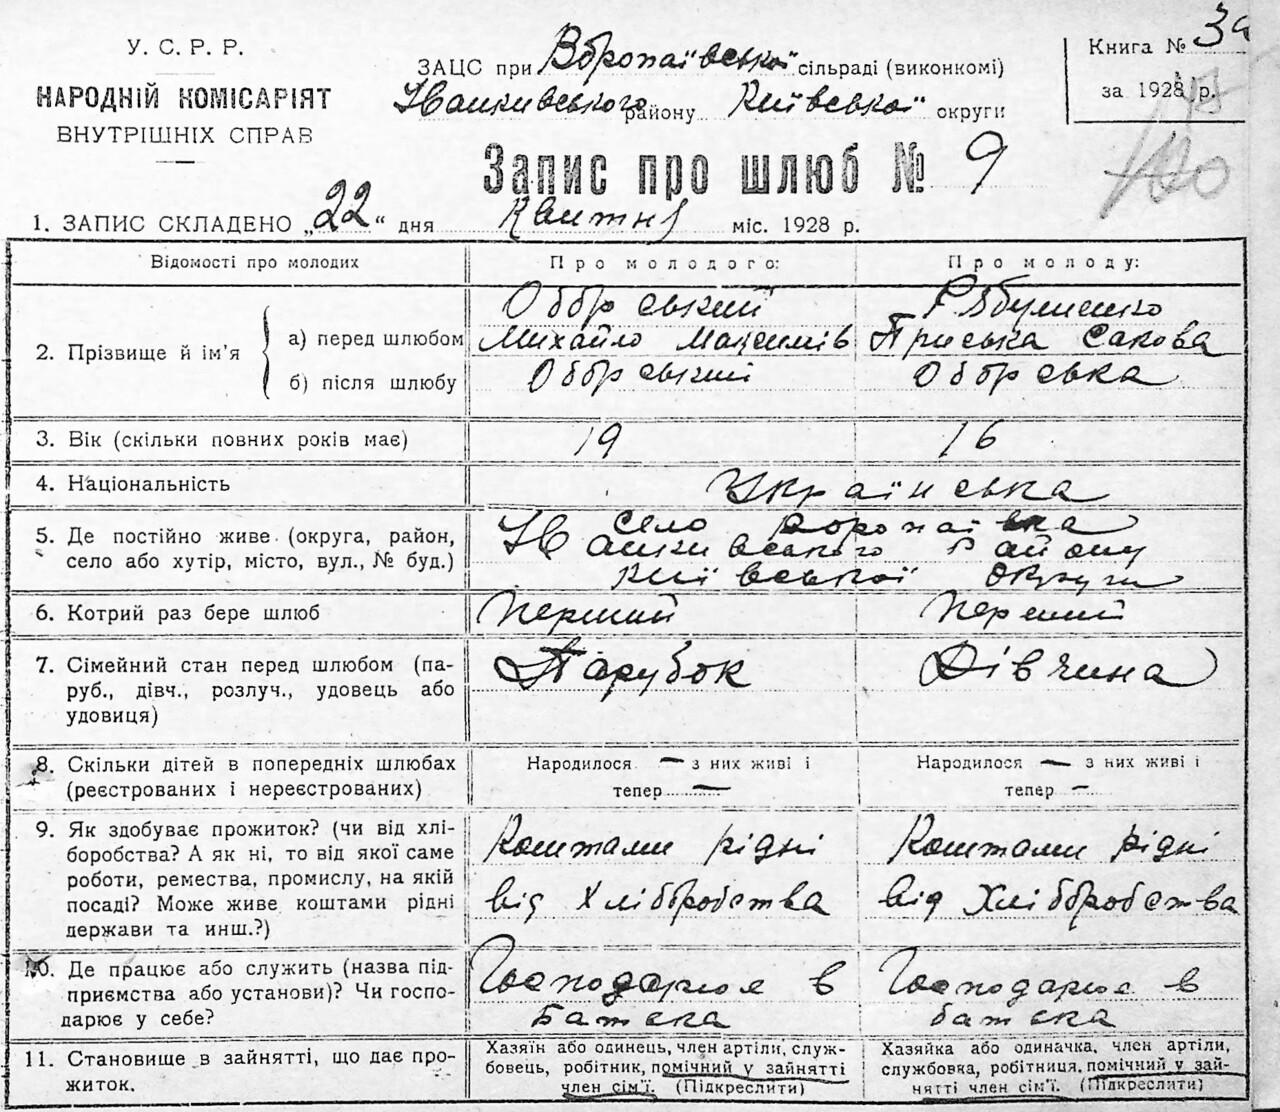 У. С. Р. Р.
НАРОДНІЙ КОМІСАРІЯТ
ВНУТРІШНІХ СПРАВ
ЗАЦС при Воропаївської сільраді (виконкомі)
Іванківського району Київської округи
Книга №
за 1928 р.
Запис про шлюб № 9
1. ЗАПИС СКЛАДЕНО „22“ дня Квітня міс. 1928 р.
Відомості про молодих Про молодого: Про молоду:
2. Прізвище й ім'я
а) перед шлюбом
Оборський
Михайло Максимів
Приська Сакова
б) після шлюбу Оборський Оборська
3. Вік (скільки повних років має) 19 16
4. Національність Українська
5. Де постійно живе (округа, район, село або хутір, місто, вул., № буд.)
Село Воропаївка
Іванківського Району
Київської Округи
6. Котрий раз бере шлюб Перший Перший
7. Сімейний стан перед шлюбом (па-
руб., дівч., розлуч., удовець або
удовиця)
Парубок Дівчина
8. Скільки дітей в попередніх шлюбах
(реєстрованих і нереєстрованих)
Народилося — з них живі і
тепер —
Народилося — з них живі і
тепер —
9. Як здобуває прожиток? (чи від хлі-
боробства? А як ні, то від якої саме
роботи, ремества, промислу, на якій
посаді? Може живе коштами рідні
держави та инш.?)
Коштами рідні
від Хліборобства
Коштами рідні
від Хліборобства
10. Де працює або служить (назва під-
приємства або установи)? Чи госпо-
дарює у себе?
Господарює в
батька
Господарює в
батька
11. Становище в зайнятті, що дає про-
житок.
Хазяїн або одинець, член артіли, служ-
бовець, робітник, помічний у зайнятті
член сім'ї. (Підкреслити)
Хазяйка або одиначка, член артіли,
службовка, робітниця, помічний у зай-
нятті член сім'ї. (Підкреслити)